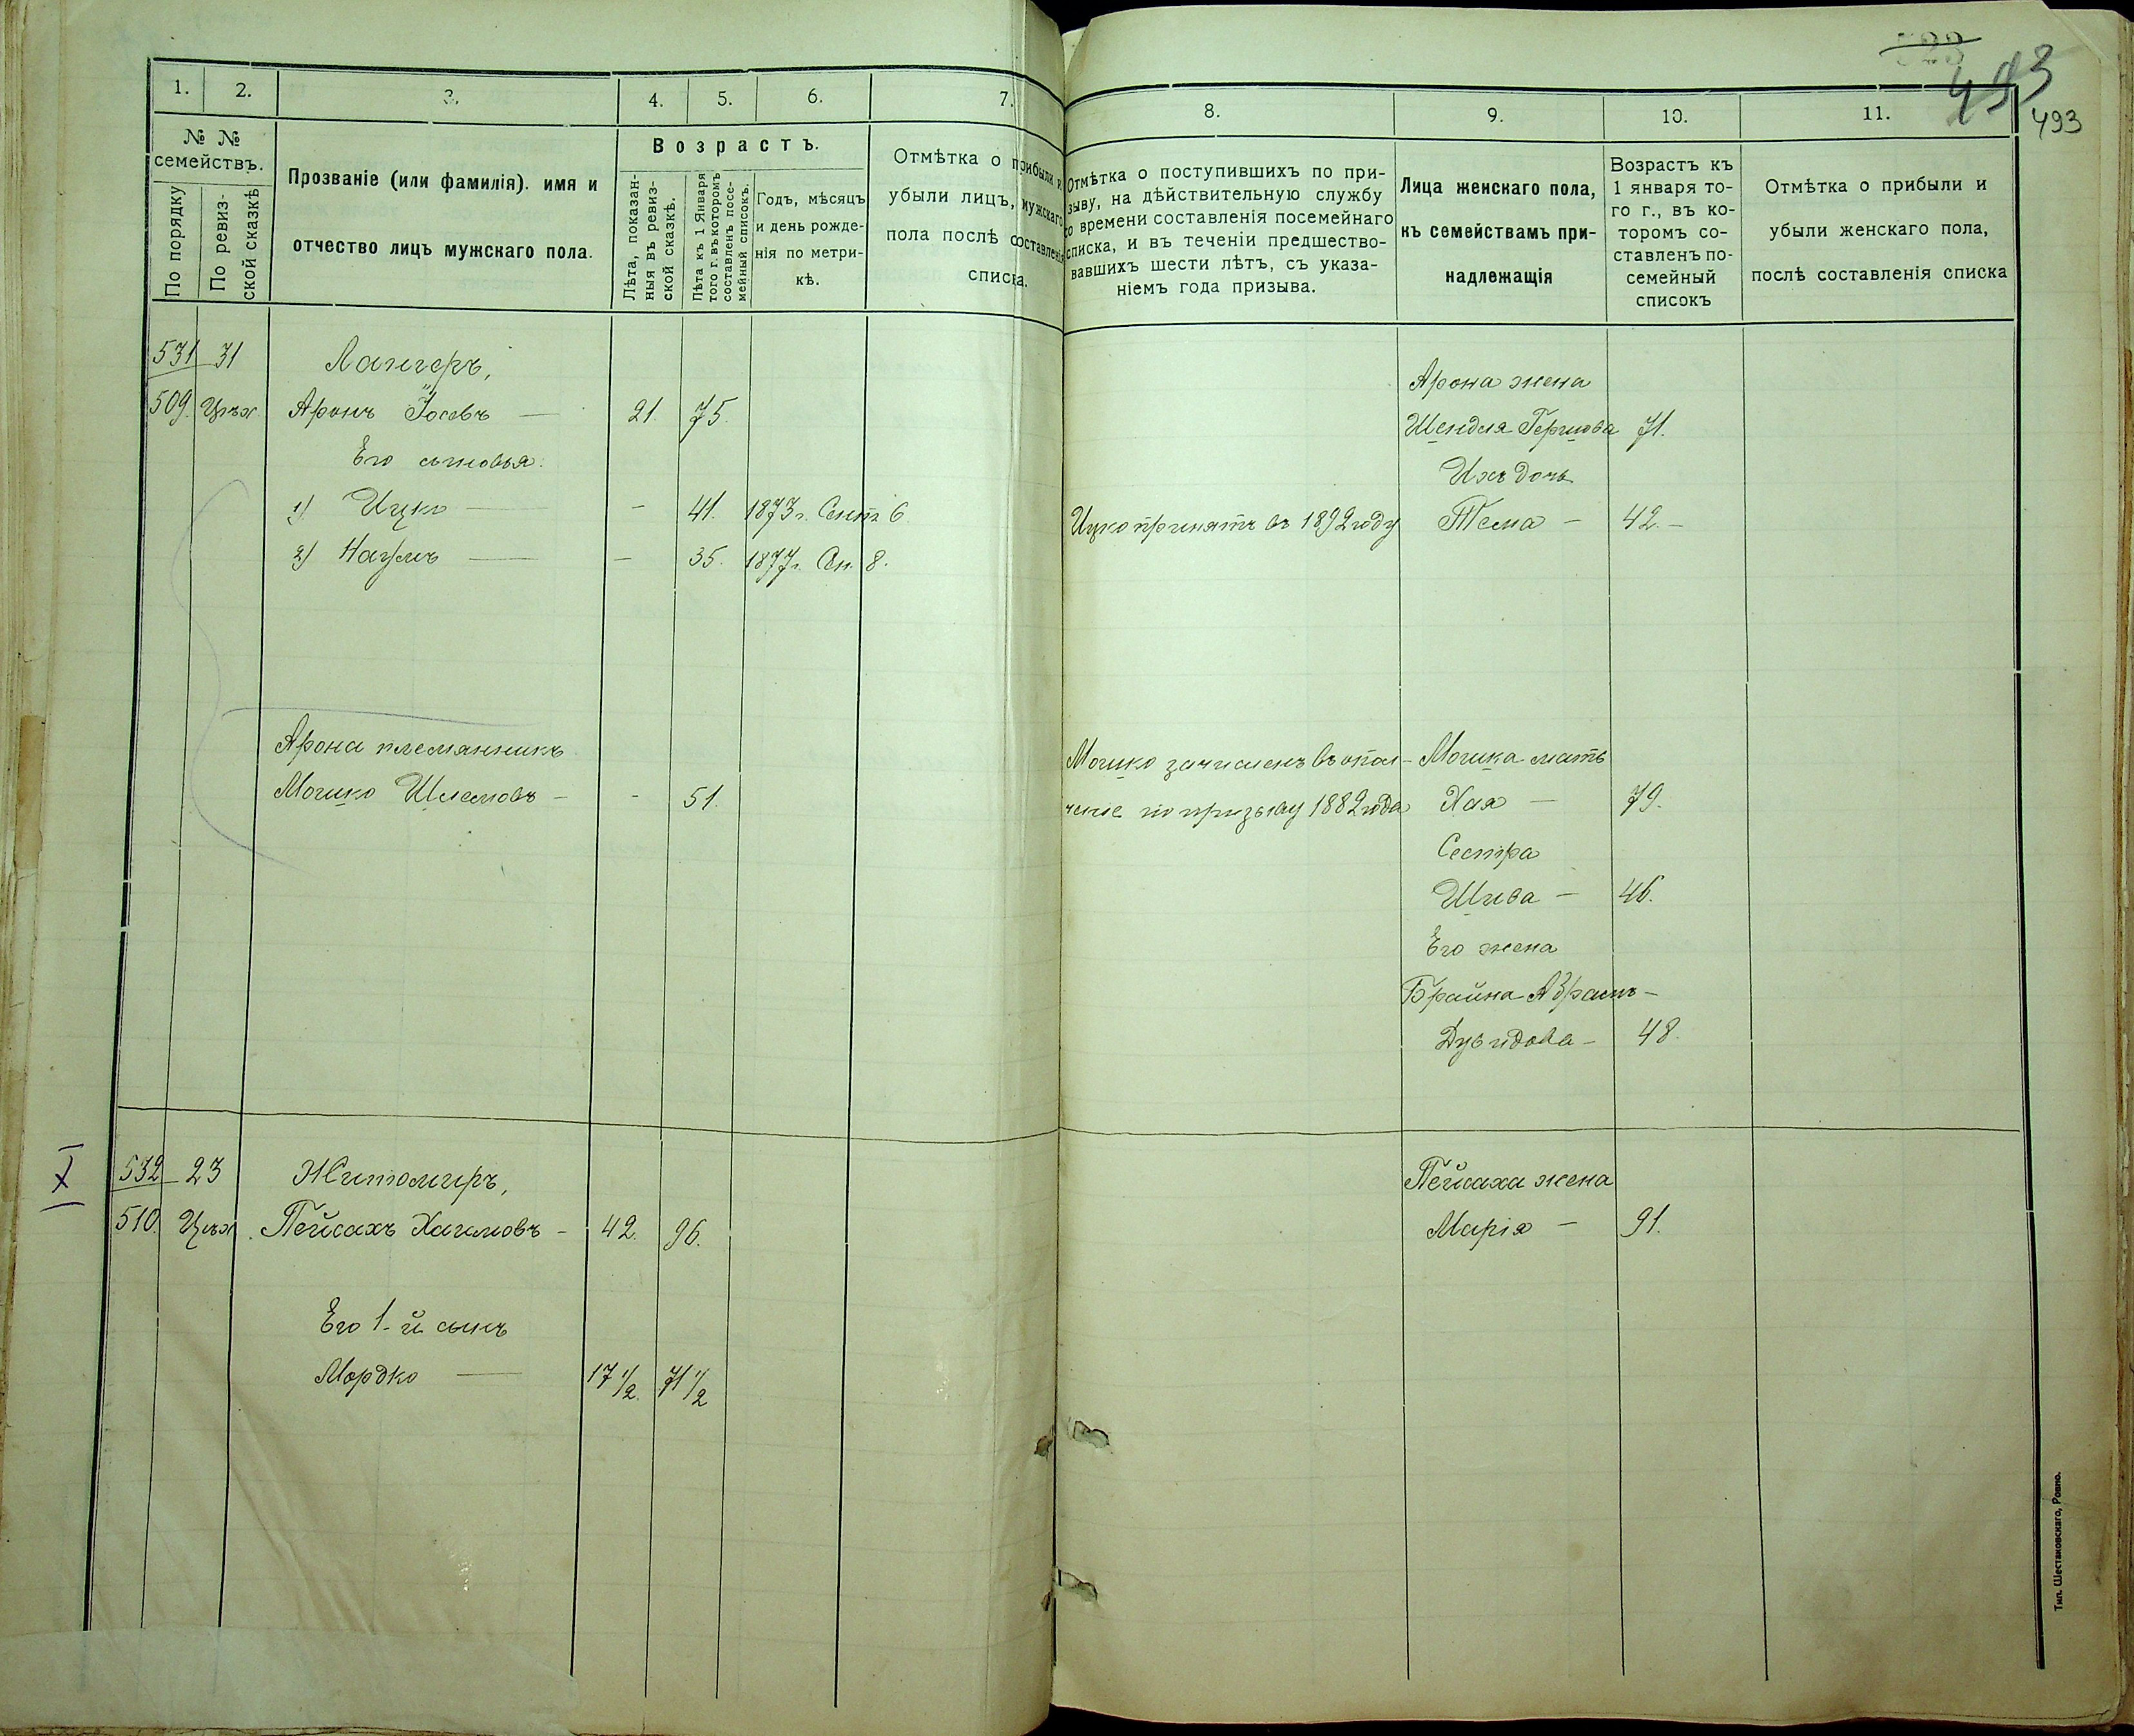 493
493
1. 2. 3. 4. 5. 6. 7.
№ №
семействъ.
По порядку
По ревиз-
ской сказкѣ
Прозваніе (или фамилія). имя и
отчество лицъ мужскаго пола.
Возрастъ.
Лѣта, показан-
ныя въ ревиз-
ской сказкѣ.
Лѣта къ 1 Января
того г. въ которомъ
составленъ посе-
мейный списокъ.
Годъ, мѣсяцъ
и день рожде-
нія по метри-
кѣ.
Отмѣтка о прибыли и
убыли лицъ, мужскаго
пола послѣ составленія
списка.
8. 9. 10. 11.
Отмѣтка о поступившихъ по при-
зыву, на дѣйствительную службу
со времени составленія посемейнаго
списка, и въ теченіи предшество-
вавшихъ шести лѣтъ, съ указа-
ніемъ года призыва.
Лица женскаго пола,
къ семействамъ при-
надлежащія
Возрастъ къ
1 января то-
го г., въ ко-
торомъ со-
ставленъ по-
семейный
списокъ
Отмѣтка о прибыли и
убыли женскаго пола,
послѣ составленія списка
531 31 Лангеръ,
509. Цехъ Аронъ Іосевъ — 21. 75.
Его сыновья:
1) Ицко — - 41. 1873 г. Сент. 6
2) Наумъ — — 35. 1877 г. 8.
Арона племянникъ
Мошко Шлемовъ - - 51.
532 23 Житомиръ,
510. Цехъ. Пейсахъ Хаимовъ - 42. 96.
Его 1-й сынъ
Мордко — 17 1/2. 71 1/2
Арона жена
Шендля Гершова 71.
Ихъ дочь
Ицко принятъ въ 1892 году Тема - 42. -
Мошко зачисленъ въ опол- Мошка мать
ченіе по призыву 1882 года Хая — 79.
Сестра
Шива - 46.
Его жена
Брайна Абрамъ-
Дувидова - 48
Пейсаха жена
Марія - 91.
Тип. Шестаковскаго, Ровно.